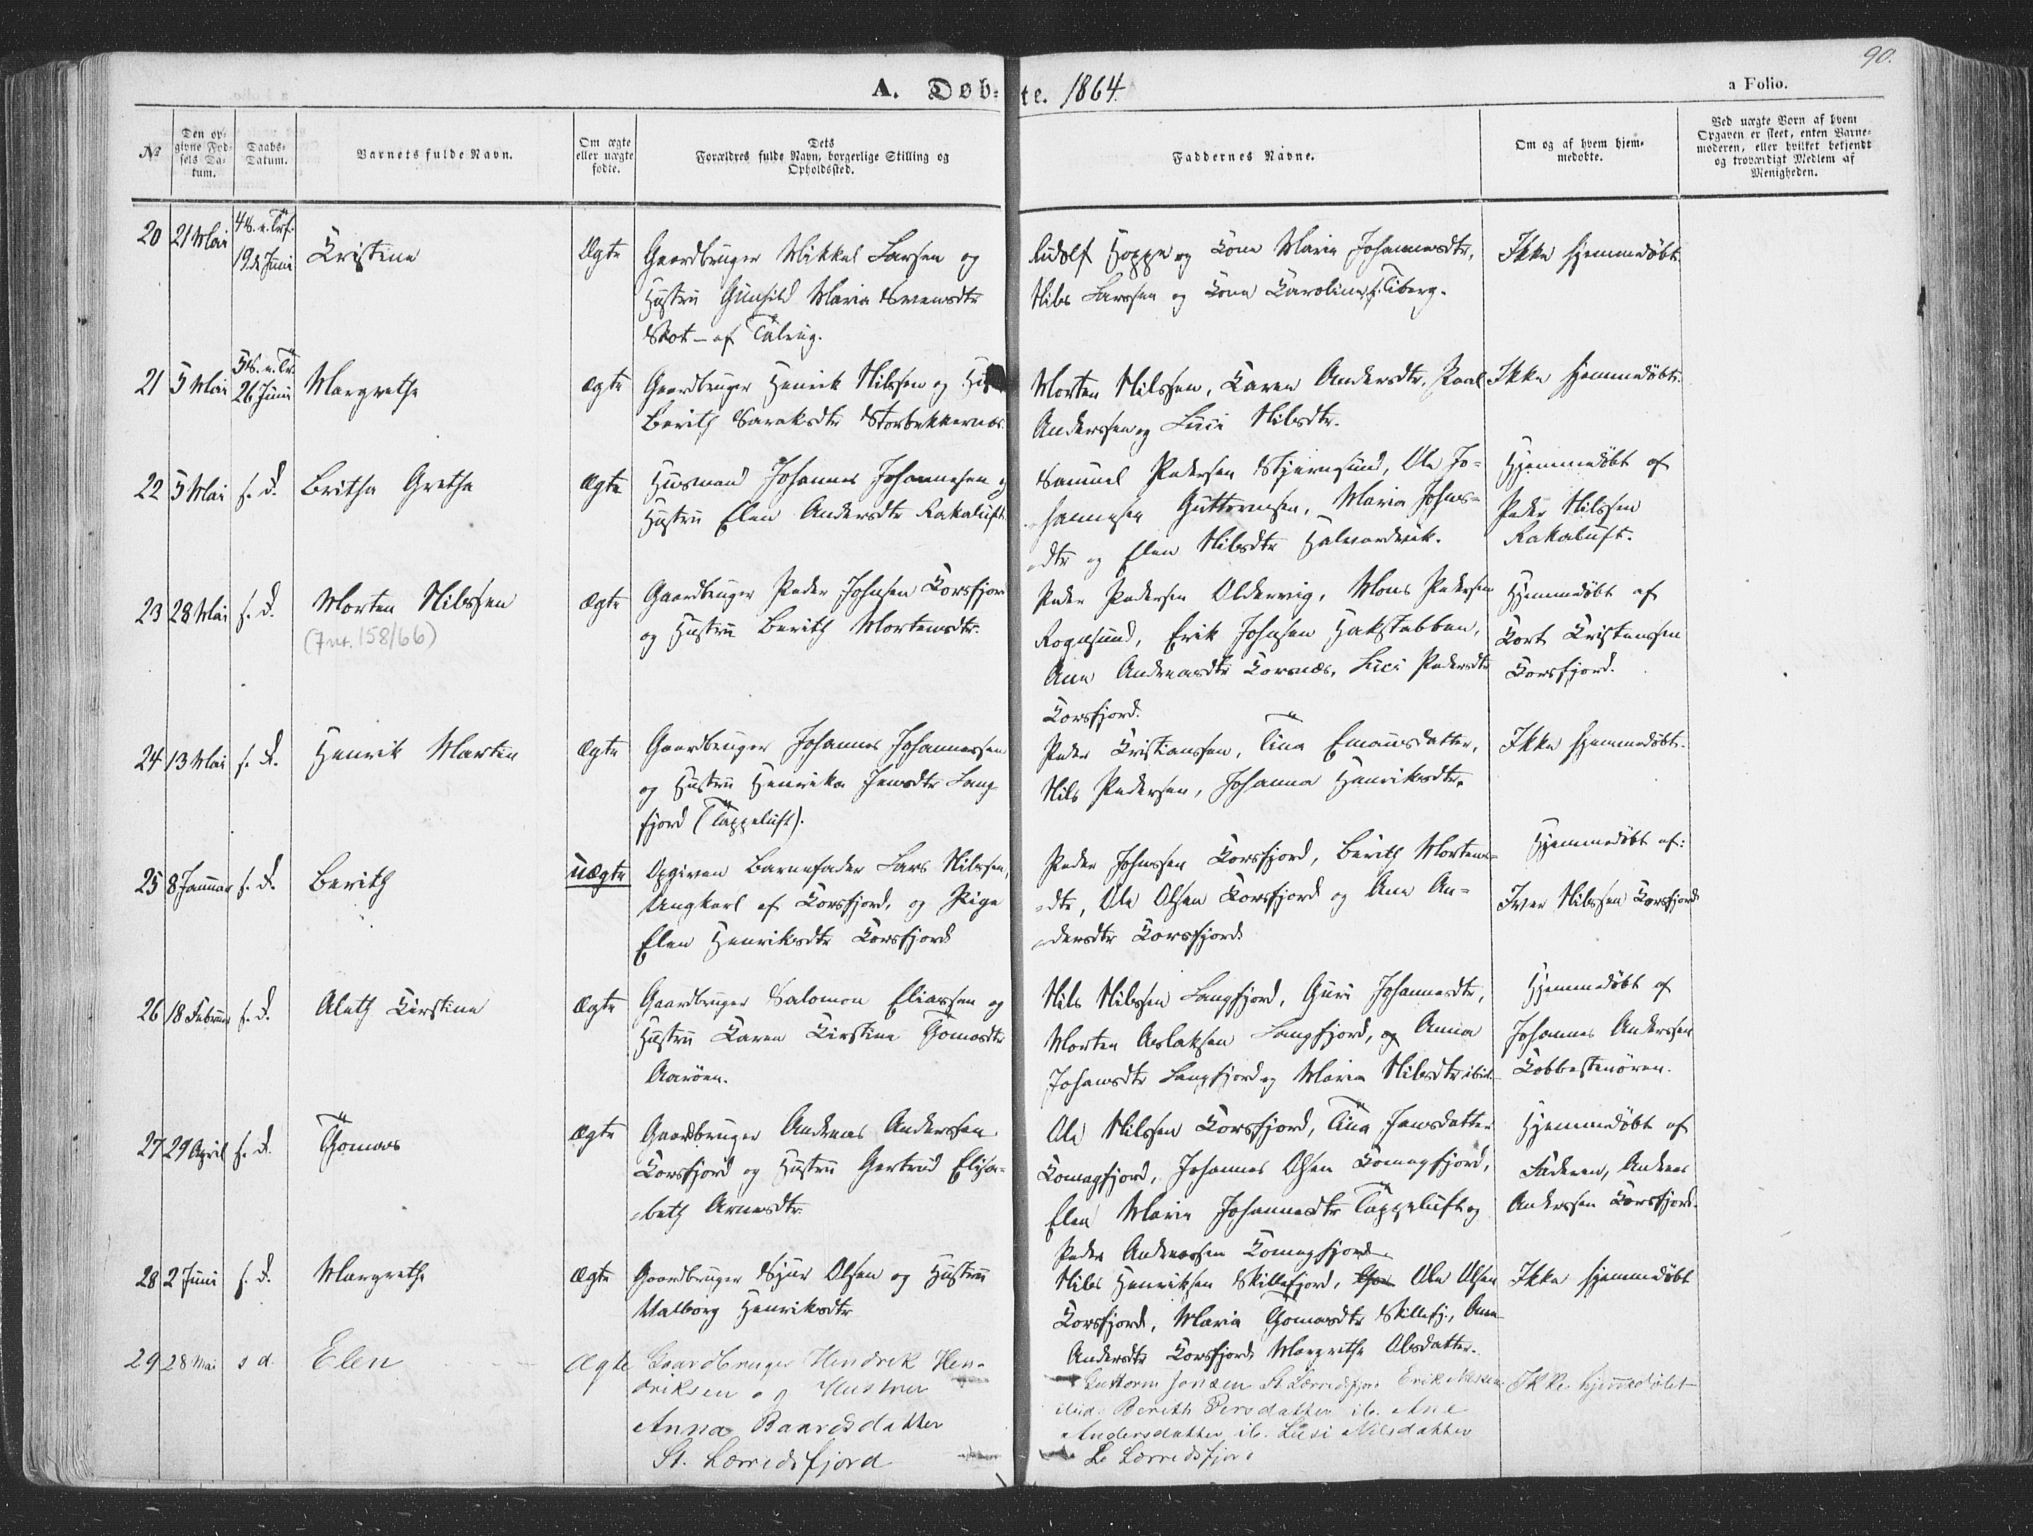 90.
A. Døb-te. 1864.
a Folio.
No
Den op-
givne Fød-
sels Da-
tum.
Daabs-
Datum.
Barnets fulde Navn.
Om ægte
eller uægte
fødte.
Dets
Forældres fulde Navn, borgerlige Stilling og
Opholdssted.
Faddernes Navne.
Om og af hvem hjem-
medøbte.
Ved uægte Børn af hvem
Opgaven er skeet, enten Barne-
moderen, eller hvilket bekjendt
og troværdigt Medlem af
Menigheden.
20 21 Mai 4 S. e. Trf. 19de Juni Kristine Ægte Gaardbruger Mikkel Larsen og
Hustru Gunhild Maria Svensdtr
Skot - af Talvig.
Rudolf Hoppe og Kone Maria Johannesdtr,
Nils Larssen og Kone Karoline f. Tiberg.
Ikke hjemmedøbt
21 5 Mai 5 S. e. Tr. 26 Juni Margrethe ægte Gaardbruger Henrik Nilssen og
Berith Saraksdtr Storbekkernæs.
Morten Nilssen, Karen Andersdtr, Poul
Anderssen og Luci Nilsdtr.
Ikke hjemmedøbt.
22 5 Mai s. d. Britha Gretha Ægte Husmand Johannes Johannesen og
Hustru Elen Andersdtr Rakaluft
Samuel Pedersen Stjernsund, Ole Jo-
hannesen Guttormsen, Maria Johns-
dtr og Elen Nilsdtr Halvardvik.
Hjemmedøbt af
Peder Nilssen
Rakaluft.
23 28 Mai s. d. Morten Nilssen
(Fvt. 158/66)
Ægte Gaardbruger Peder Johnsen Korsfjord
og Hustru Berith Mortensdtr.
Peder Pedersen Oldervig, Mons Pedersen
Rognsund, Erik Johnsen Hakstabben,
Ane Andreasdtr Korsnæs, Luci Pedersdtr
Korsfjord.
Hjemmedøbt af
Kort Kristenssen
Korsfjord.
24 13 Mai s. d. Henrik Martin Ægte Gaardbruger Johannes Johannessen
og Hustru Henrika Jensdtr Lang-
fjord (Tappeluft).
Peder Kristianssen, Tina Emausdatter,
Nils Pedersen, Johanna Henriksdtr.
Ikke hjemmedøbt.
25 8 Januar s. d. Berith uægte Opgiven Barnefader Lars Nilssen,
Ungkarl af Korsfjord, og Pige
Elen Henriksdtr Korsfjord
Peder Johnssen Korsfjord, Berith Mortens-
dtr, Ole Olsen Korsfjord og Ane An-
dersdtr Korsfjord
Hjemmedøbt af:
Iver Nilssen Korsfjord
26 18 Februar s. d. Aleth Kirstine Ægte Gaardbruger Salomon Eliassen og
Hustru Karen Kirstine Thomasdtr
Aarøen.
Nils Nilssen Langfjord, Guri Johannesdtr,
Morten Aslaksen Langfjord, og Anna
Johansdtr Langfjord og Maria Nilsdtr ibid.
Hjemmedøbt af
Johannes Anderssen
Kobbestenøren.
27 29 April s. d. Thomas Ægte Gaardbruger Andreas Anderssen
Korsfjord og Hustru Gertrud Elisa-
beth Arnesdtr.
Ole Nilssen Korsfjord, Tina Jensdatter
Komagfjord, Johannes Olsen Komagfjord,
Elen Marie Johannesdtr Tappeluft og
Peder Andreassen Komagfjord
Hjemmedøbt af
Faderen, Andreas
Anderssen Korsfjord.
28 2 Juni s. d. Margrethe Ægte Gaardbruger Sjur Olsen og Hustru
Valborg Henriksdtr
Nils Henriksen Skillefjord, Ole Olsen
Korsfjord, Maria Thomasdtr Skillefj., Ane
Andersdtr Korsfjord, Margrethe Olsdatter.
Ikke hjemmedøbt
29 28 Mai s d. Elen Ægte Gaardbruger Hendrek Hen-
driksen og Hustrue
Anna Baardsdatter
St. Lerredsfjord
Guttorm Jonsen St. Lerredsfjord Erik
ibid. Bereth Persdatter ib. Ane
Andersdatter ib. Lusi Nilsdatter
L. Lerredsfjord
Ikke hjemmedøbt